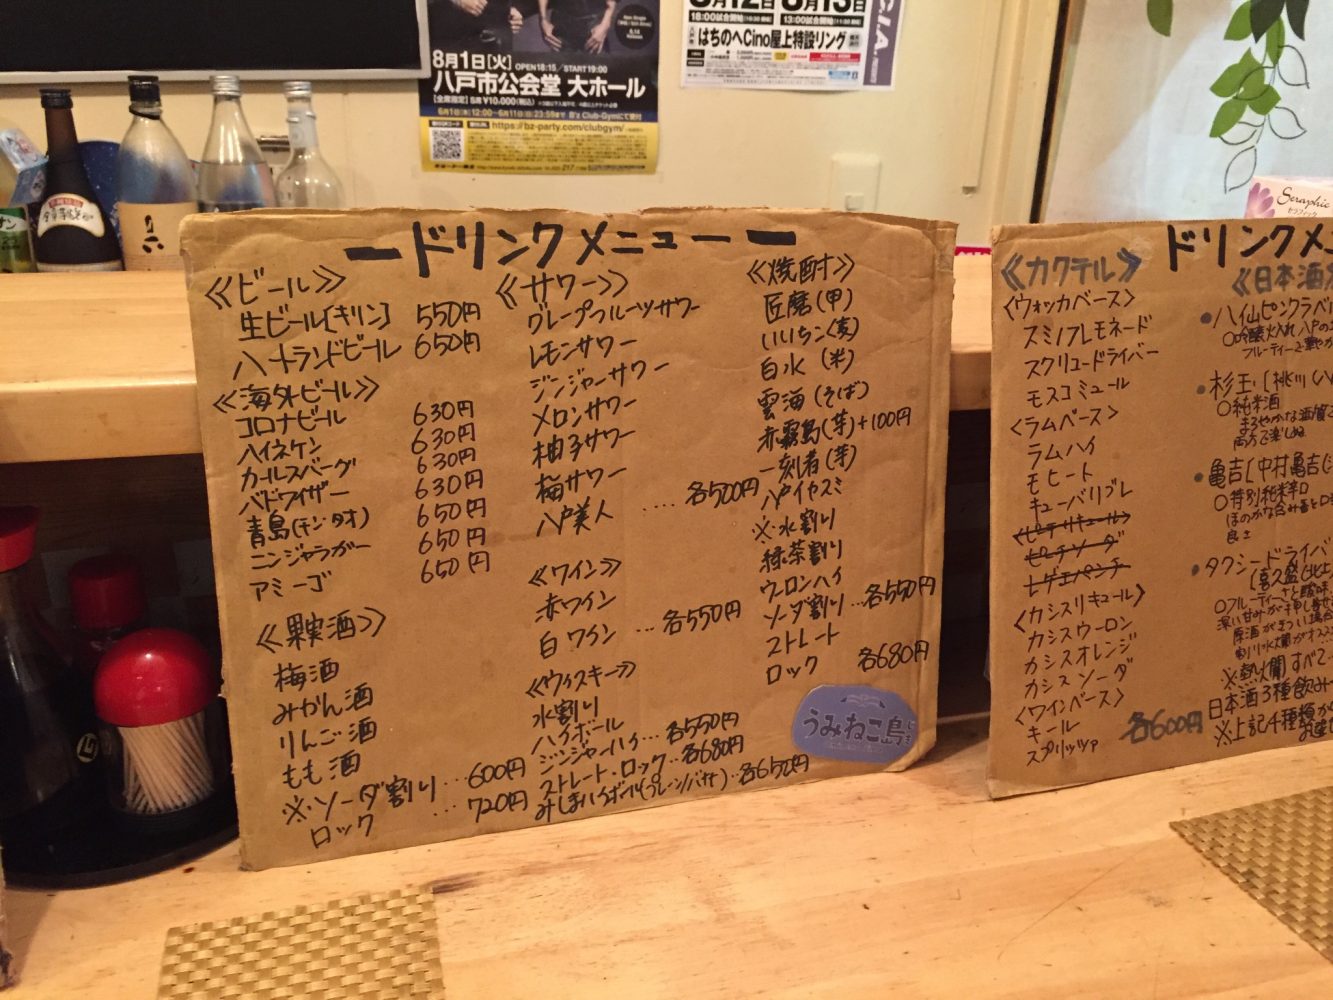 8月12日 8月13日
18:00試合開始 13:00試合開始
はちのへCino屋上特設リング
8月1日[火] OPEN18:15/START19:00
八戸市公会堂 大ホール
[全席指定] S席 ¥10,000(税込)
https://bz-party.com/clubgym/
Seraphic
セラフィック
ードリンクメニューー
《ビール》
生ビール[キリン] 550円
ハートランドビール 650円
《海外ビール》
コロナビール 630円
ハイネケン 630円
カールスバーグ 630円
バドワイザー 630円
青島(チンタオ) 650円
ニンジャラガー 650円
アミーゴ 650円
《果実酒》
梅酒
みかん酒
りんご酒
もも酒
※ソーダ割り...600円
ロック ...720円
《サワー》
グレープフルーツサワー
レモンサワー
ジンジャーサワー
メロンサワー
柚子サワー
梅サワー
八戸美人 ....各500円
《ワイン》
赤ワイン
白ワイン ...各550円
《ウィスキー》
水割り
ハイボール
ジンジャーハイ...各550円
ストレート・ロック...各680円
みしまハイボール(プレーン/バサ)..各650円
《焼酎》
匠磨(甲)
いいちこ(麦)
白水(米)
雲海(そば)
赤霧島(芋)+100円
一刻者(芋)
八戸イヤスミ
※水割り
緑茶割り
ウーロンハイ
ソーダ割り...各550円
ストレート
ロック 各680円
うみねこ島
ドリンクメニュ
《カクテル》
<ウォッカベース>
スミノフレモネード
スクリュードライバー
モスコミュール
<ラムベース>
ラムハイ
モヒート
キューバリブレ
<ピーチリキュール>
ピーチソーダ
<カシスリキュール>
カシスウーロン
カシスオレンジ
カシスソーダ
<ワインベース>
キール
スプリッツァ 各600円
《日本酒
・八仙ピンクラベル
○吟醸火入れ 八戸の
フルーティーで華やか
・杉玉[桃川(八
○純米酒
まろやかな酒質で
両方で楽しめ
・亀吉[中村亀吉(
○特別純米辛口
ほのかな含み香と口
良さ
・タクシードライバ
[喜久盛(北上
○フルーティーさと酸味
深い甘みが押し寄せ
原酒がきつい場合
割り水燗がオスス
※熱燗すべて
日本酒3種飲み
※上記4種類か